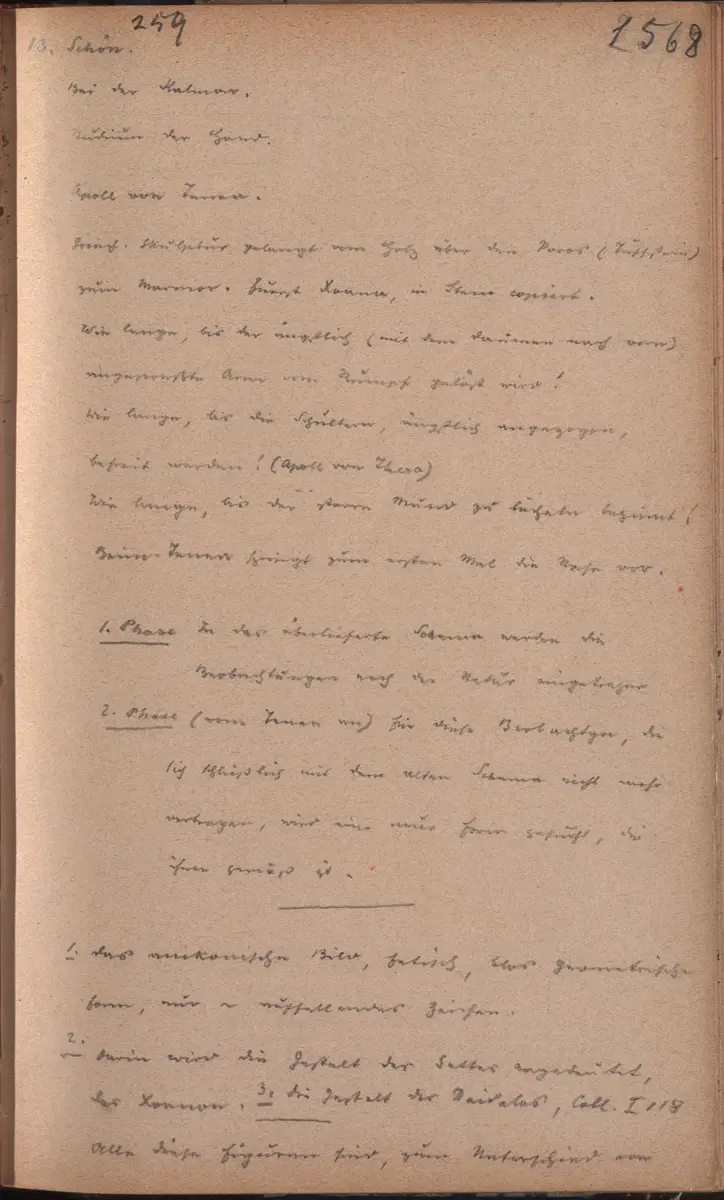 259
2568
13. Schön.
Bei der Kalmar.
Studium der Hand.
Apoll von Tenea.
Griech. Skulptur gelangt vom Holz über den Poros (Tuffstein)
zum Marmor. Zuerst Xoana, in Stein copiert.
Wie lange, bis der ängstlich (mit dem Daumen nach vorn)
angepresste Arm vom Rumpf gelöst wird!
Wie lange, bis die Schultern, ängstlich angezogen,
befreit werden! (Apoll von Thera)
Wie lange, bis der starre Mund zu lächeln beginnt!
Beim Tenea springt zum ersten Mal die Nase vor.
1. Phase In das überlieferte Schema werden die
Beobachtungen nach der Natur eingetragen
2. Phase (vom Tenea an) für diese Beobachtgen, die
sich schließlich mit dem alten Schema nicht mehr
vertragen, wird eine neue Form gesucht, die
ihnen gemäß ist.
1. das anikonische Bild, Fetisch, blos geometrische
Form, nur e auffallendes Zeichen.
2. darin wird die Gestalt des Gottes angedeutet,
das Xoanon. 3. die Gestalt des Daidalos, Coll. I 118
Alle diese Figuren sind, zum Unterschied von